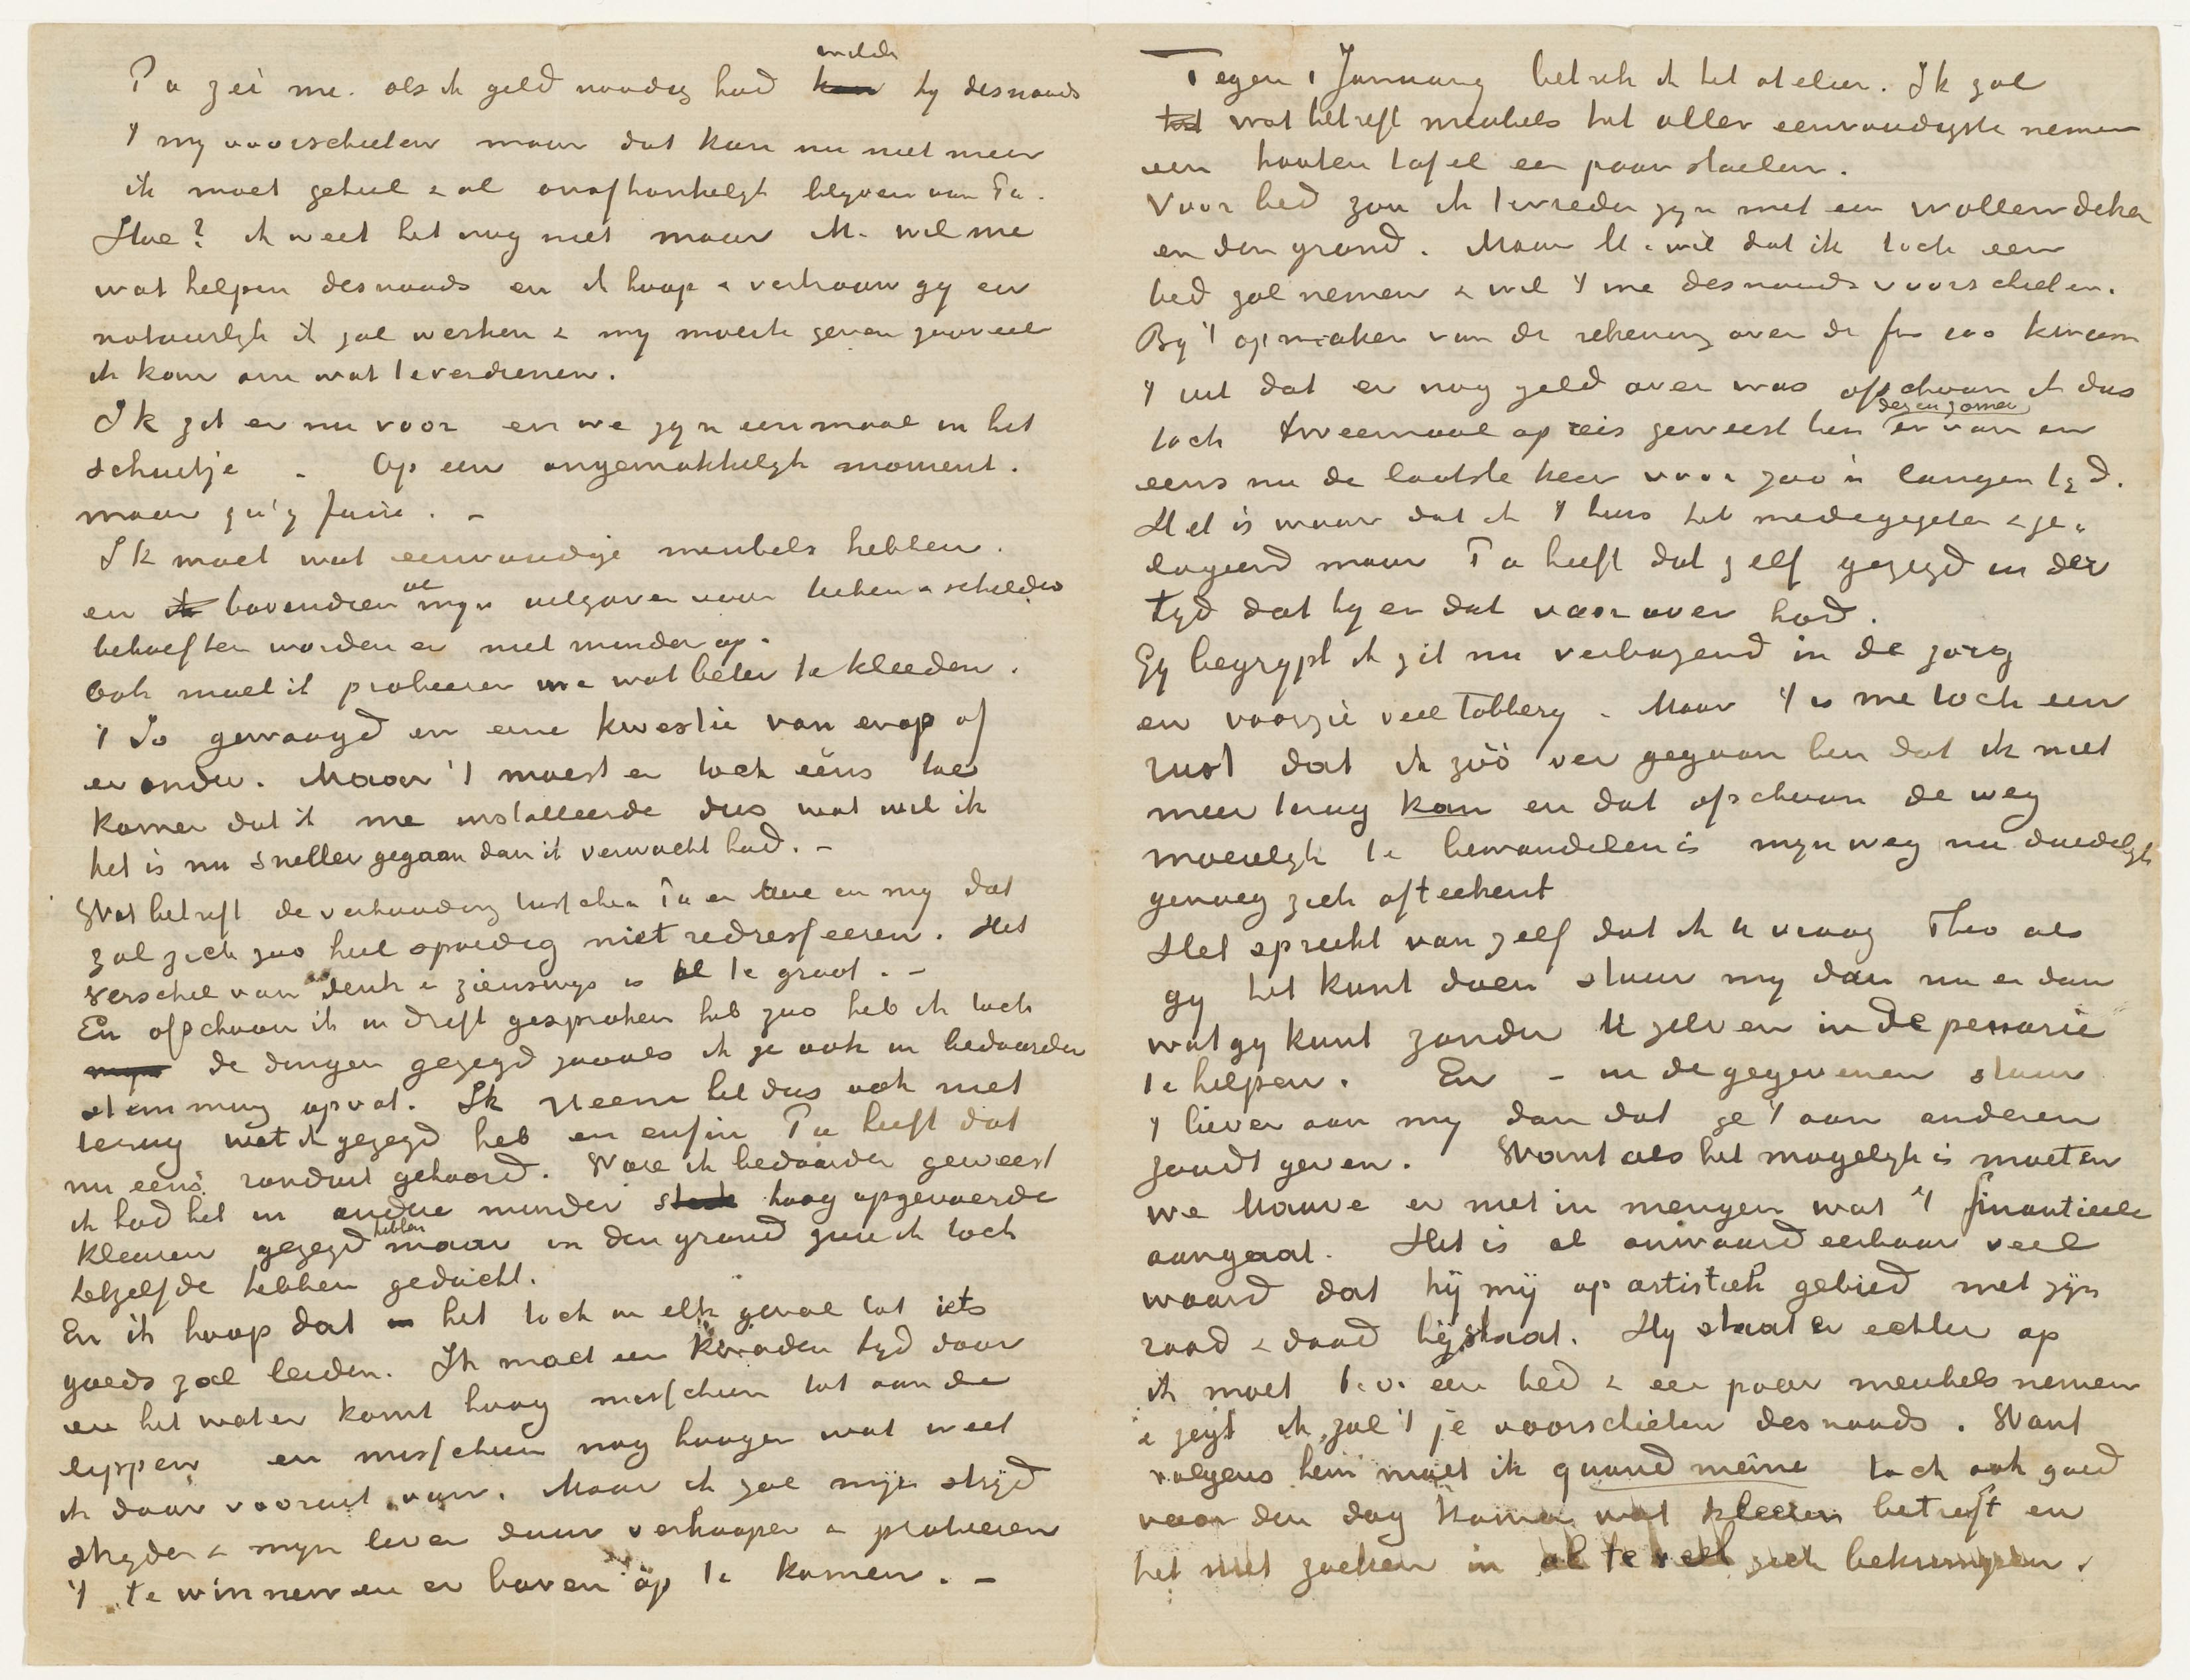 Pa zei me. als ik geld noodig had wilde kan hy desnoods
't my voorschieten maar dat kan nu niet meer
ik moet geheel & al onafhankelyk blyven van Pa.
Hoe? ik weet het nog niet maar M. wil me
wat helpen desnoods en ik hoop & vertrouw gy en
natuurlyk ik zal werken & my moeite geven zooveel
ik kan om wat te verdienen.
Ik zit er nu voor en we zyn eenmaal in het
schuitje. Op een ongemakkelyk moment.
maar qu'y faire. –
Ik moet wat eenvoudige meubels hebben.
en ik bovendien al myn uitgaven voor teeken & schilder
behoeften worden er niet minder op.
Ook moet ik probeeren me wat beter te kleeden.
't Is gewaagd en eene kwestie van erop of
eronder. Maar 't moest er toch ééns toe
komen dat ik me installeerde dus wat wil ik
het is nu sneller gegaan dan ik verwacht had. –
Wat betreft de verhouding tusschen Pa en Moe en my dat
zal zich zoo heel spoedig niet redresseeren. Het
verschil van denk & zienswys is al te groot. –
En ofschoon ik in drift gesproken heb zoo heb ik toch
de dingen gezegd zooals ik ze ook in bedaarder
stemming opvat. Ik neem het dus ook niet
terug wat ik gezegd heb en enfin Pa heeft dat
nu eens ronduit gehoord. Ware ik bedaarder geweest
ik had het in andere minder sterk hoog opgevoerde
kleuren gezegd hebben maar in den grond zou ik toch
hetzelfde hebben gedacht.
En ik hoop dat het toch in elk geval tot iets
goeds zal leiden. Ik moet een kwaden tyd door
en het water komt hoog misschien tot aan de
lippen en misschien nog hooger wat weet
ik daar vooruit van. Maar ik zal mijn stryd
stryden & myn leven duur verkoopen & probeeren
't te winnen en er boven op te komen. –
Tegen 1 January betrek ik het atelier. Ik zal
wat betreft meubels het aller eenvoudigste nemen
een houten tafel een paar stoelen.
Voor bed zou ik tevreden zyn met een wollen deken
en den grond. Maar M. wil dat ik toch een
bed zal nemen & wil 't me desnoods voorschieten.
By 't opmaken van de rekening over de kwam
't uit dat er nog geld over was ofschoon ik dus
toch tweemaal op reis geweest ben dezen zomer en
eens nu de laatste keer voor zoo'n langen tyd.
Het is waar dat ik 't huis heb medegegeten & ge„
logeerd maar Pa heeft dat zelf gezegd in der
tyd dat hy er dat voor over had.
Gy begrypt ik zit nu verbazend in de zorg
en voorzie veel tobbery. Maar 't is me toch een
rust dat ik zóó ver gegaan ben dat ik niet
meer terug kan en dat ofschoon de weg
moeielyk te bewandelen is myn weg nu duidelyk
genoeg zich afteekent
Het spreekt van zelf dat ik U vraag Theo als
gy het kunt doen stuur my dan nu en dan
wat gy kunt zonder U zelven in de penurie
te helpen. En – in de gegevenen stuur
't liever aan my dan dat ge 't aan anderen
zoudt geven. Want als het mogelyk is moeten
we Mauve er niet in mengen wat 't finantieele
aangaat. Het is al onwaardeerbaar veel
waard dat hij mij op artistiek gebied met zyn
raad & daad bijstaat. Hy staat er echter op
ik moet b.v. een bed & een paar meubels nemen
& zegt ik zal 't je voorschieten desnoods. Want
volgens hem moet ik quand même toch ook goed
voor den dag komen wat kleeren betreft en
het niet zoeken in al te veel zich bekrimpen.